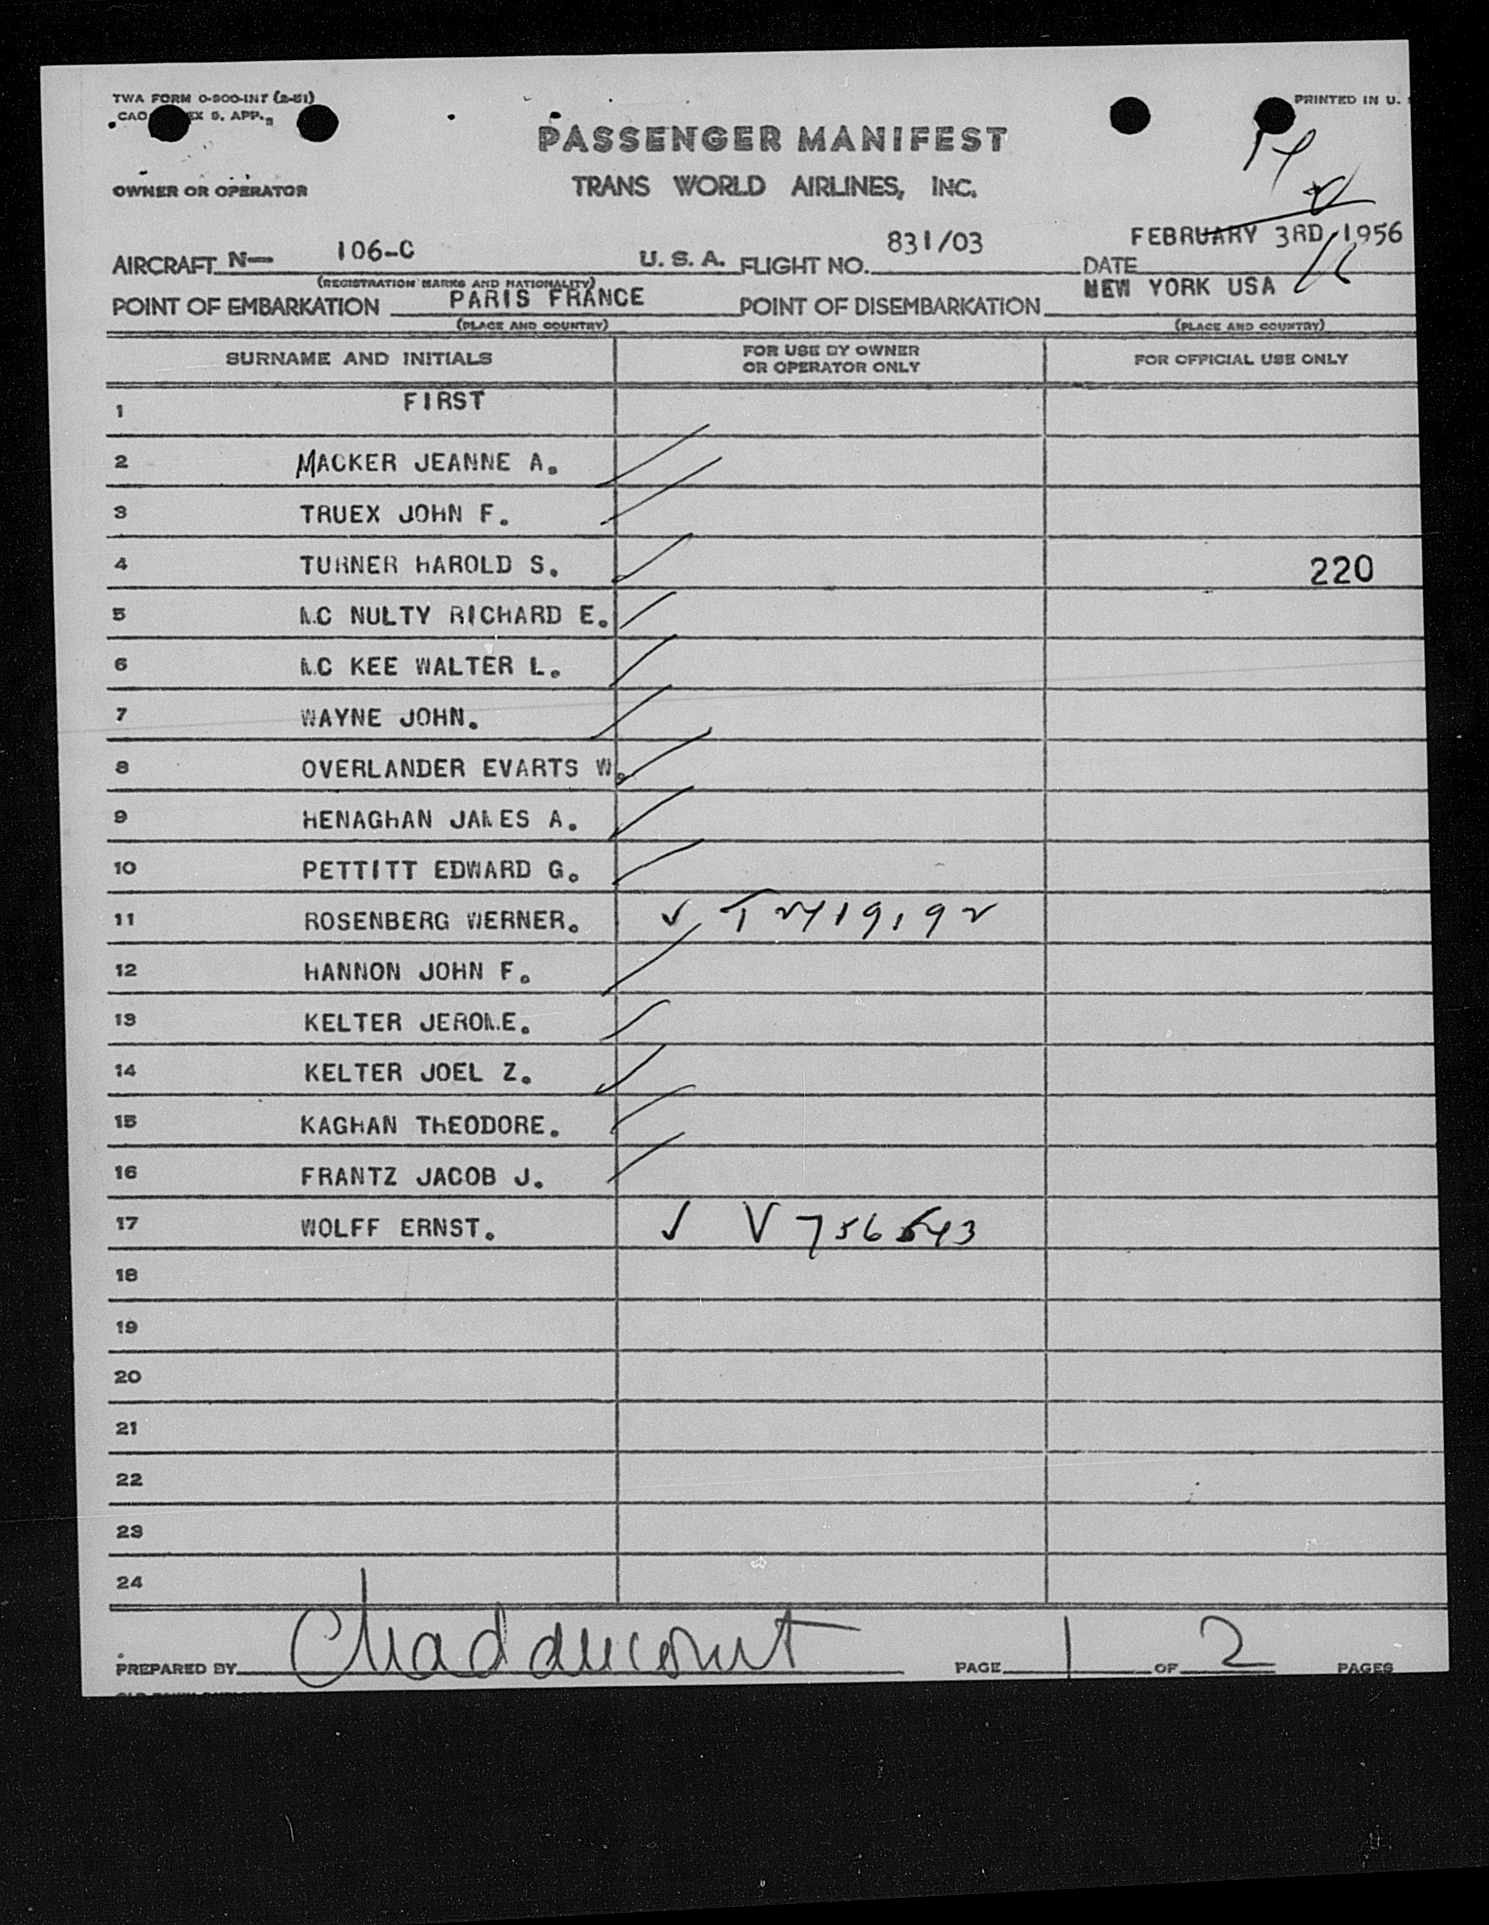 TWA FORM O-900-INT (2-51)
PRINTED IN U.
PASSENGER MANIFEST
OWNER OR OPERATOR
TRANS WORLD AIRLINES, INC.
AIRCRAFT N— 106-C U. S. A. FLIGHT NO. 831/03 DATE FEBRUARY 3RD, 1956
(REGISTRATION MARKS AND NATIONALITY)
POINT OF EMBARKATION PARIS FRANCE POINT OF DISEMBARKATION NEW YORK USA
(PLACE AND COUNTRY) (PLACE AND COUNTRY)
SURNAME AND INITIALS FOR USE BY OWNER OR OPERATOR ONLY FOR OFFICIAL USE ONLY
1 FIRST
2 MACKER JEANNE A.
3 TRUEX JOHN F.
4 TURNER HAROLD S. 220
5 MC NULTY RICHARD E.
6 MC KEE WALTER L.
7 WAYNE JOHN.
8 OVERLANDER EVARTS W.
9 HENAGHAN JAMES A.
10 PETTITT EDWARD G.
11 ROSENBERG WERNER. ✓
12 HANNON JOHN F.
13 KELTER JEROME.
14 KELTER JOEL Z.
15 KAGHAN THEODORE.
16 FRANTZ JACOB J.
17 WOLFF ERNST. ✓ V 756643
18
19
20
21
22
23
24
PREPARED BY PAGE 1 OF 2 PAGES